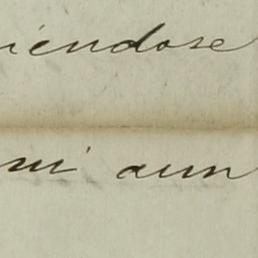 iendose
mi aun